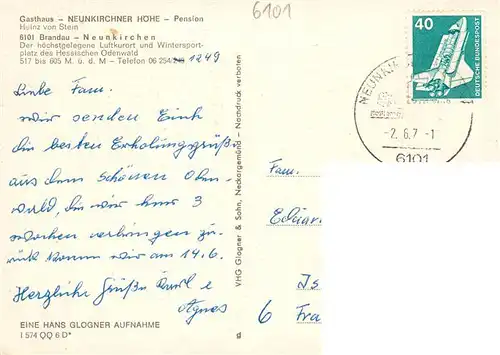 6101
Gasthaus – NEUNKIRCHNER HÖHE – Pension
Heinz von Stein
6101 Brandau – Neunkirchen
Der höchstgelegene Luftkurort und Wintersport-
platz des Hessischen Odenwald
517 bis 605 M. ü. d. M – Telefon 06 254/ 1249
Liebe Fam.
wir senden Euch
die besten Erholungsgrüße
aus dem Schönen Oden-
wald, die wir hier 3
wochen verbringen zu-
rück kommen wir am 14.6.
Herzliche Grüße Karl e
Agnes
EINE HANS GLOGNER AUFNAHME
I 574 QQ 6 D*
VHG Glogner & Sohn, Neckargemünd – Nachdruck verboten
g
40
DEUTSCHE BUNDESPOST
NEUNKI
-2.6.7 -1
6101
Fam.
Eduar
6 Fra